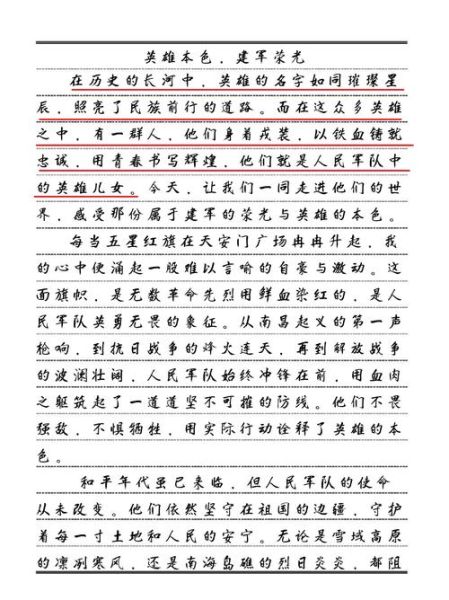 英雄本色，建军荣光
在历史的长河中，英雄的名字如同璀璨星
辰，照亮了民族前行的道路。而在这众多英雄
之中，有一群人，他们身着戎装，以铁血铸就
忠诚，用青春书写辉煌，他们就是人民军队中
的英雄儿女。今天，让我们一同走进他们的世
界，感受那份属于建军的荣光与英雄的本色。
每当五星红旗在天安门广场冉冉升起，我
的心中便涌起一股难以言喻的自豪与激动。这
面旗帜，是无数革命先烈用鲜血染红的，是人
民军队英勇无畏的象征。从南昌起义的第一声
枪响，到抗日战争的烽火连天，再到解放战争
的波澜壮阔，人民军队始终冲锋在前，用血肉
之躯筑起了一道道坚不可摧的防线。他们不畏
强敌，不惧牺牲，用实际行动诠释了英雄的本
色。
和平年代虽已来临，但人民军队的使命
从未改变。他们依然坚守在祖国的边疆，守护
着每一寸土地和人民的安宁。无论是雪域高原
的凛冽寒风，还是南海岛礁的烈日炎炎，都阻